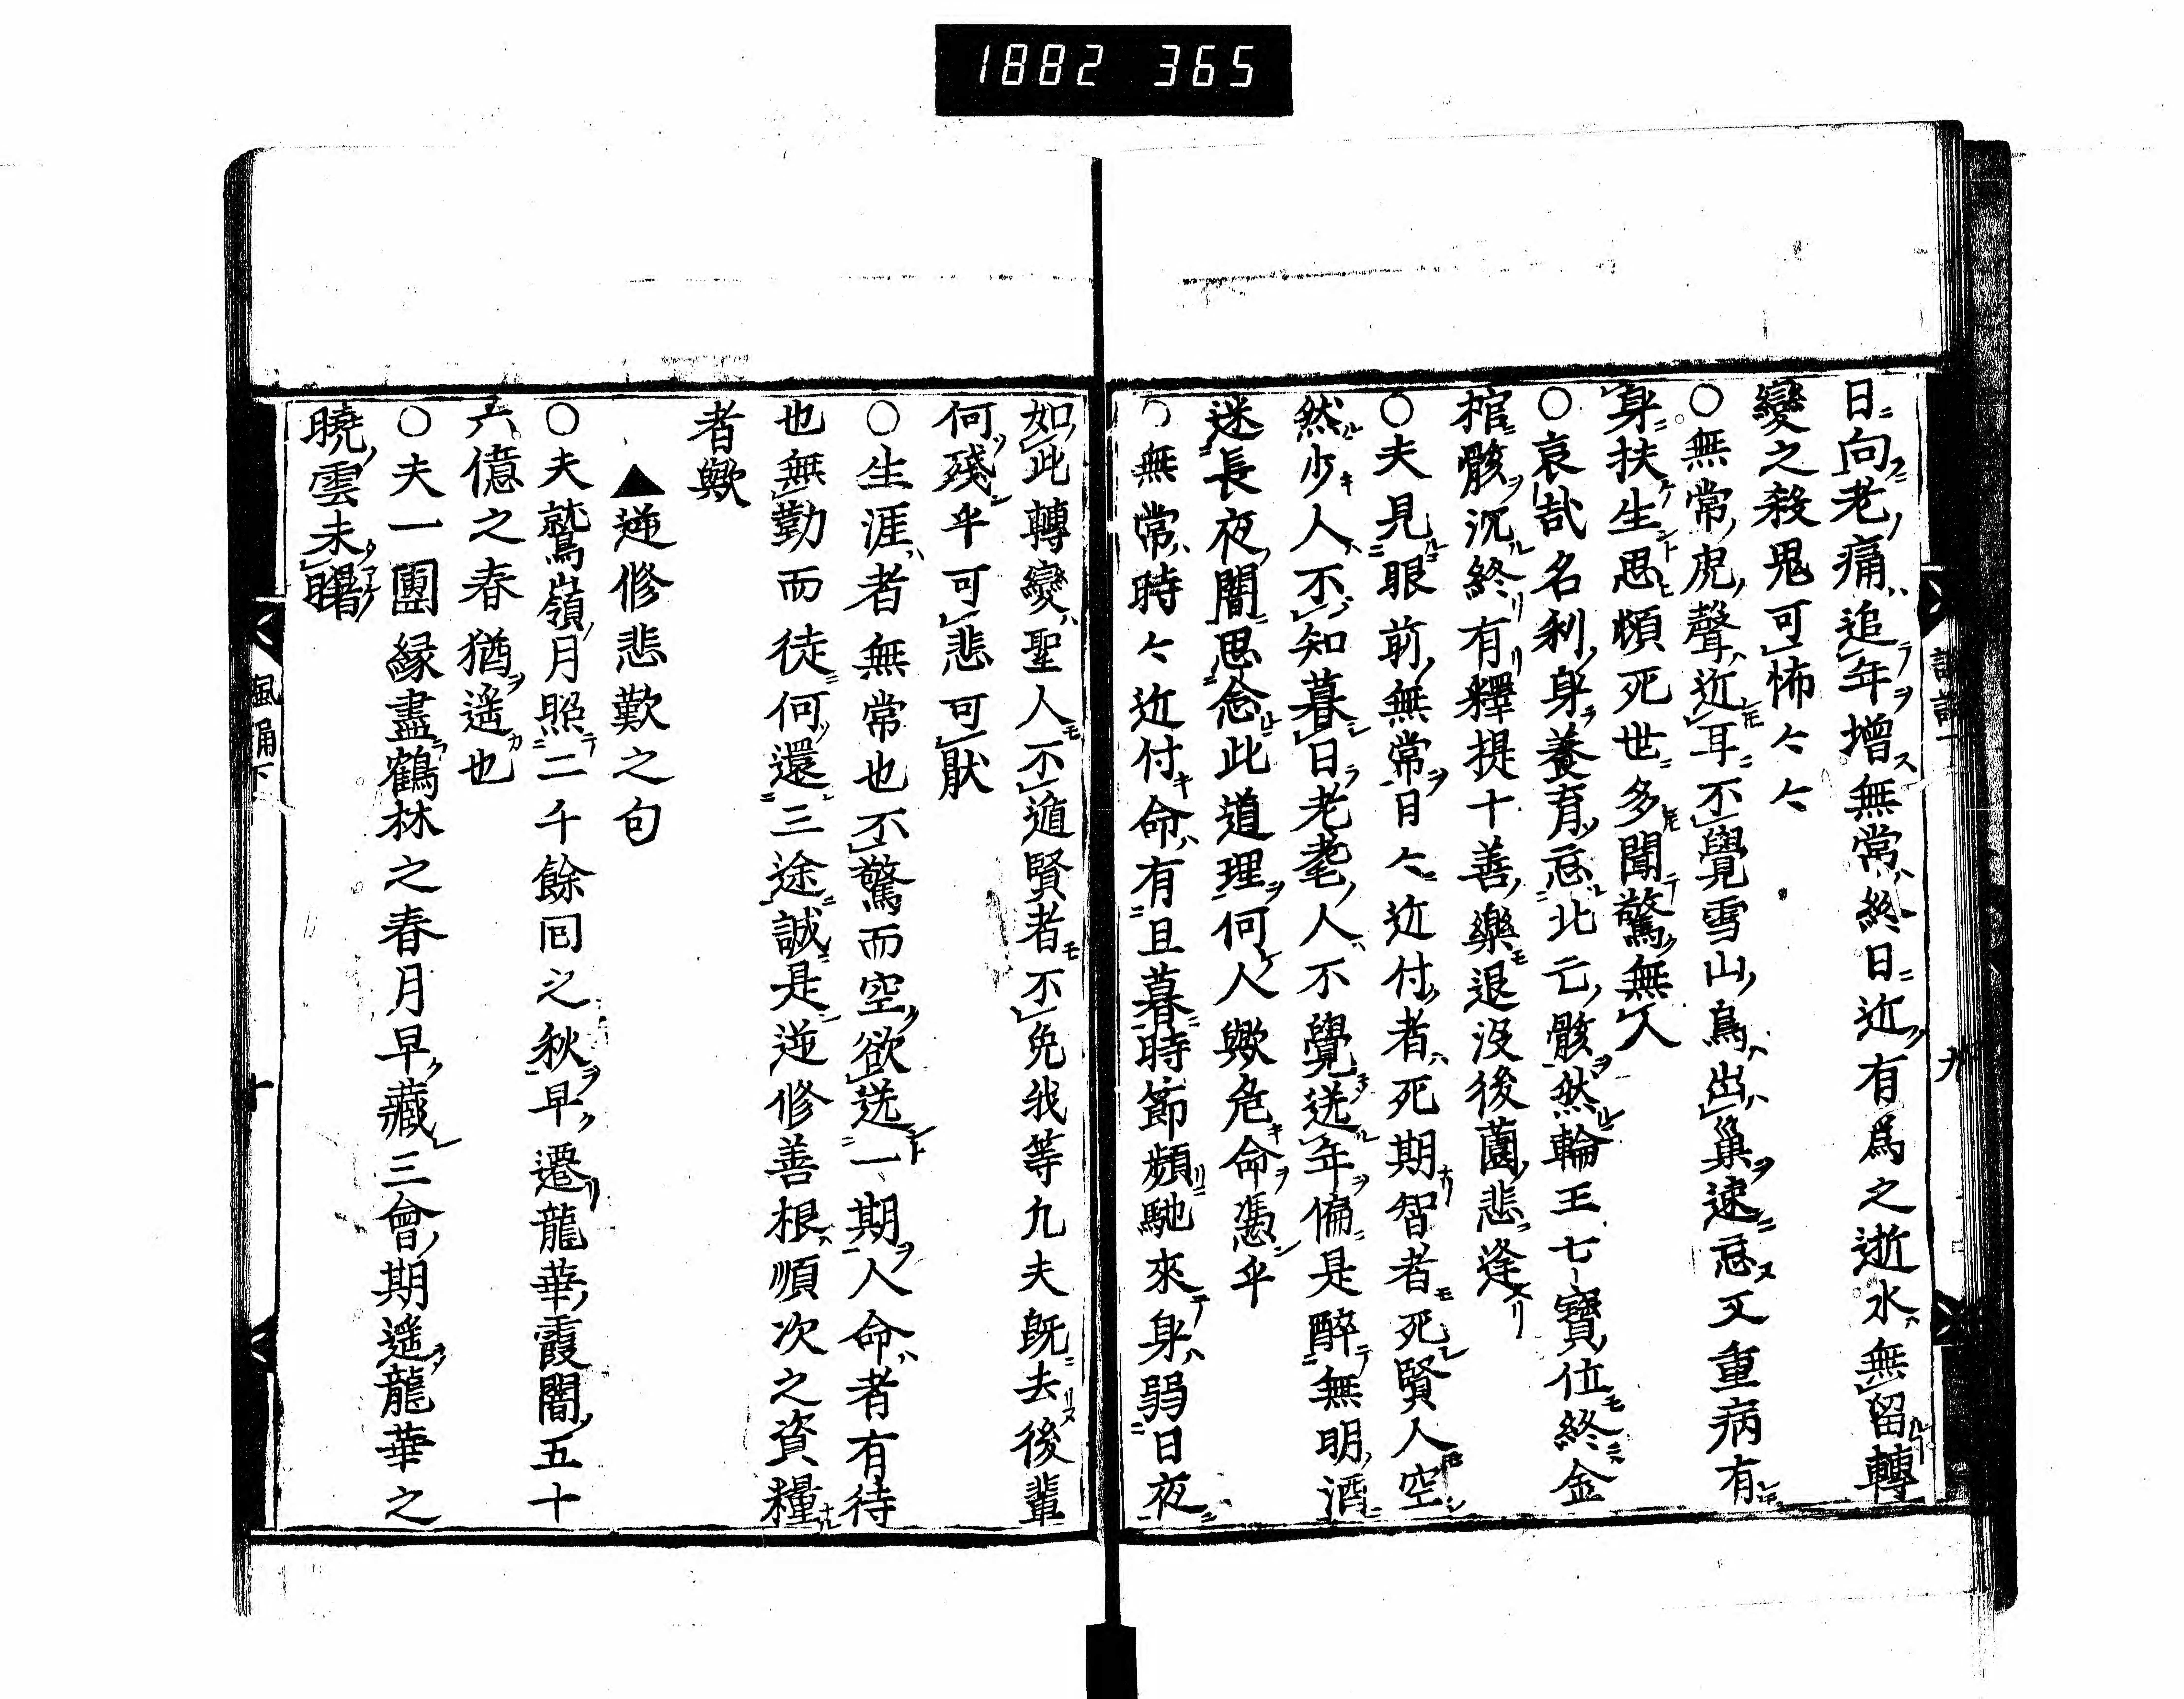 1882 365
日向老痛追年增無常終日近有爲之逝水無留轉
變之殺鬼可怖々々
○無常虎聲近耳不覺雪山鳥出巢速忘又重病有
身扶生思煩死世多聞驚無人
○哀哉名利身養育忘北亡骸然輪王七寶位終金
棺骸沉終有釋提十善樂退没後薗悲逢
○夫見眼前無常日々近付者死期智者死賢人空
然少人不知暮日老耄人不覺送年偏是醉無明酒
迷長夜闇思念此道理何人歟危命憑乎
○無常時々近付命有且暮時節頻馳來身弱日夜
如此轉變聖人不遁賢者不免我等九夫既去後輩
何殘乎可悲可猒
○生涯者無常也不驚而空欲送一期人命者有待
也無勤而徒何還三途誠是逆修善根順次之資糧
者歟
▲逆修悲歎之句
○夫鷲嶺月照二千餘回之秋早遷龍華霞闇五十
六億之春猶遥也
○夫一團縁盡鶴林之春月早藏三會期遥龍華之
曉雲未曙
九
諷誦下
十